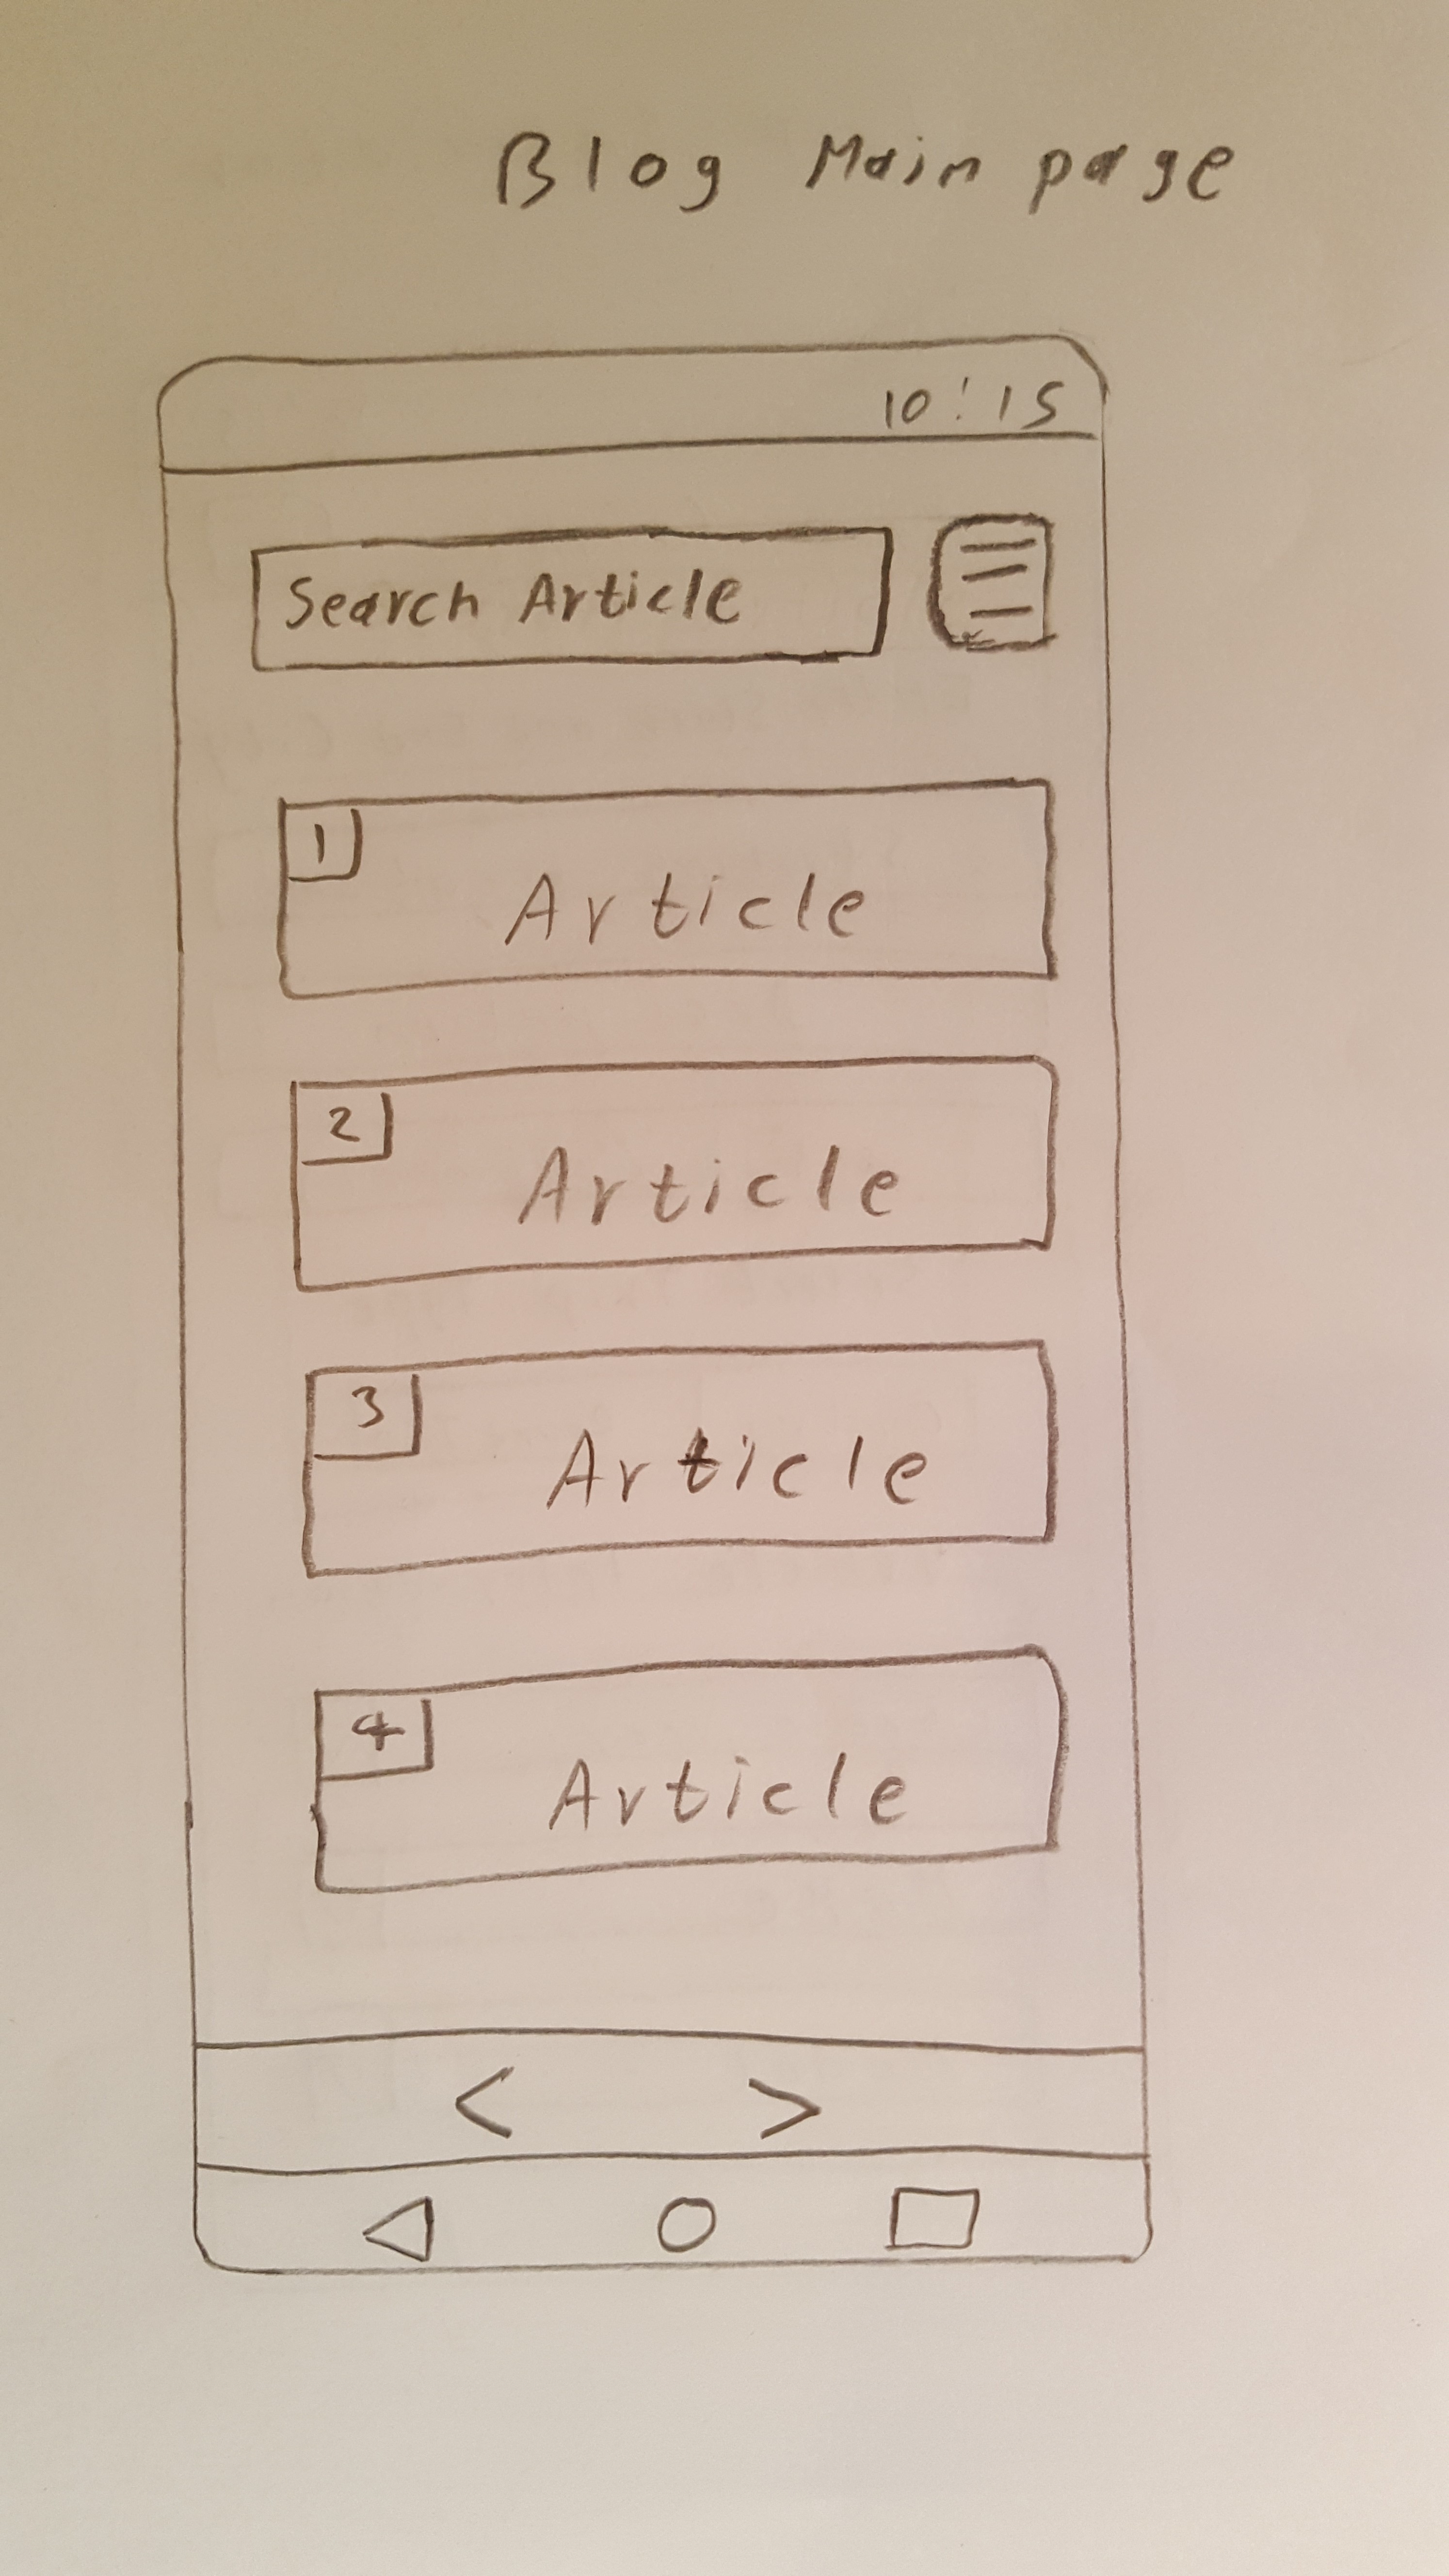 Blog Main page
10:15
Search Article
1
Article
2
Article
3
Article
4
Article
< >